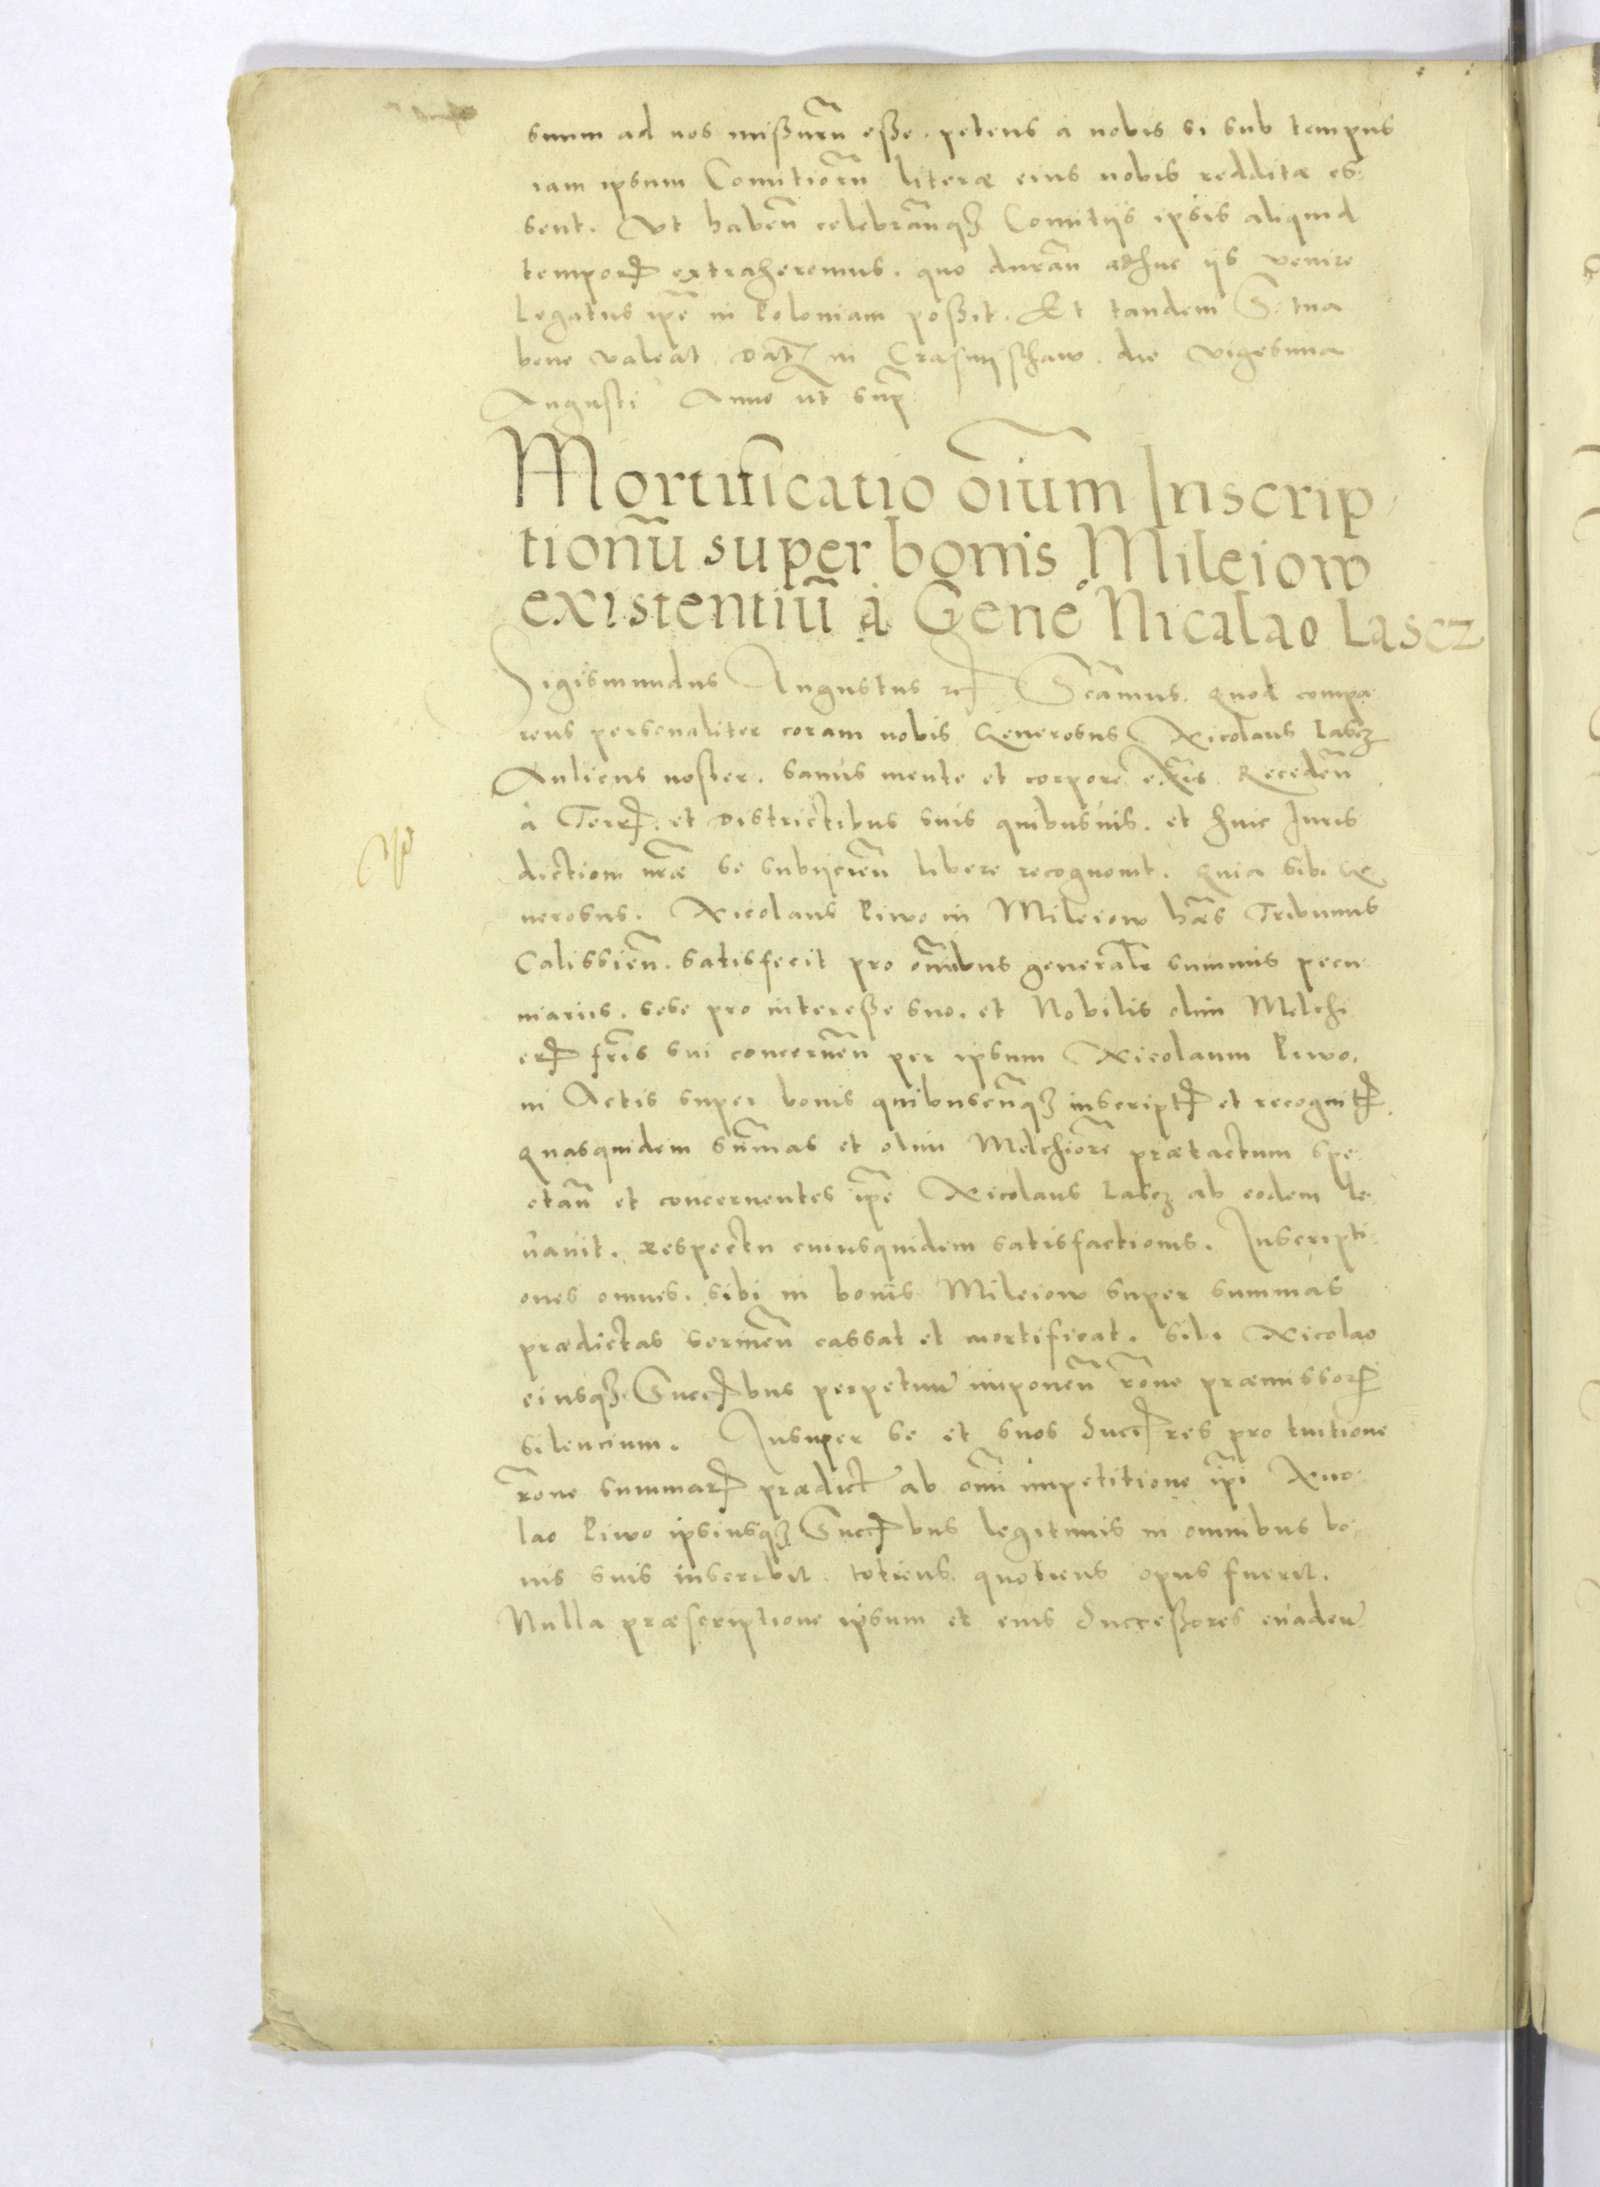 suum ad nos mißurũ eße. petens à nobis si sub tempus
iam ipsum Comitiorũ literæ eius nobis redditæ es
sent. Vt habeñ celebranqȝ Comitijs ipsis aliquid
tempor extraheremus. quo durañ adhuc ijs venire
Legatus ip̃e in Poloniam poßit. Et tandem S. tua
bene valeat. Dat in Crasniischaw. die vigesima
Augusti Anno ut sup̃
Mortificatio oĩum Inscrip
tionũ super bonis Mileiow
existentiũ à Gene Nicalao Lascz
Sigismundus Augustus Scãmus. Quod compa
rens personaliter coram nobis Generosus Nicolaus Lascz
Aulicus noster. sanus mente et corpore exñs. Recedeñ
à Terr. et Districtibus suis quibusuis. et huic Juris
dictioni nr̃æ se subijcieñ libere recognouit. Quia sibi Ge
nerosus. Nicolaus Piwo in Mileiow hæs Tribunus
Calissieñ. satisfecit pro om̃ibus generalr summis pecu
niariis. sese pro intereße suo. et Nobilis olim Melchi
or fr̃is sui concerneñ per ipsum Nicolaum Piwo.
in Actis super bonis quibuscunqȝ inscript et recognit
Quasquidem sum̃as et olim Melchiorẽ prætactum spe
ctañ et concernentes ip̃e Nicolaus Lascz ab eodem le
uauit. respectu cuiusquidem satisfactionis. Inscripti
ones omnes. sibi in bonis Mileiow super summas
prædictas seruieñ cassat et mortificat. sibi Nicolao
eiusqȝ Succ bus perpetuu imponeñ rõne præmissor
silencium. Insuper se et suos Succ res pro tuitione
rõne summar prædict ab om̃i impetitione ip̃i Nico
lao Piwo ipsiusqȝ Succ bus legitimis in omnibus bo
nis suis inscribit. totiens quotiens opus fuerit.
Nulla præscriptione ipsum et eius Succeßores euadeñ